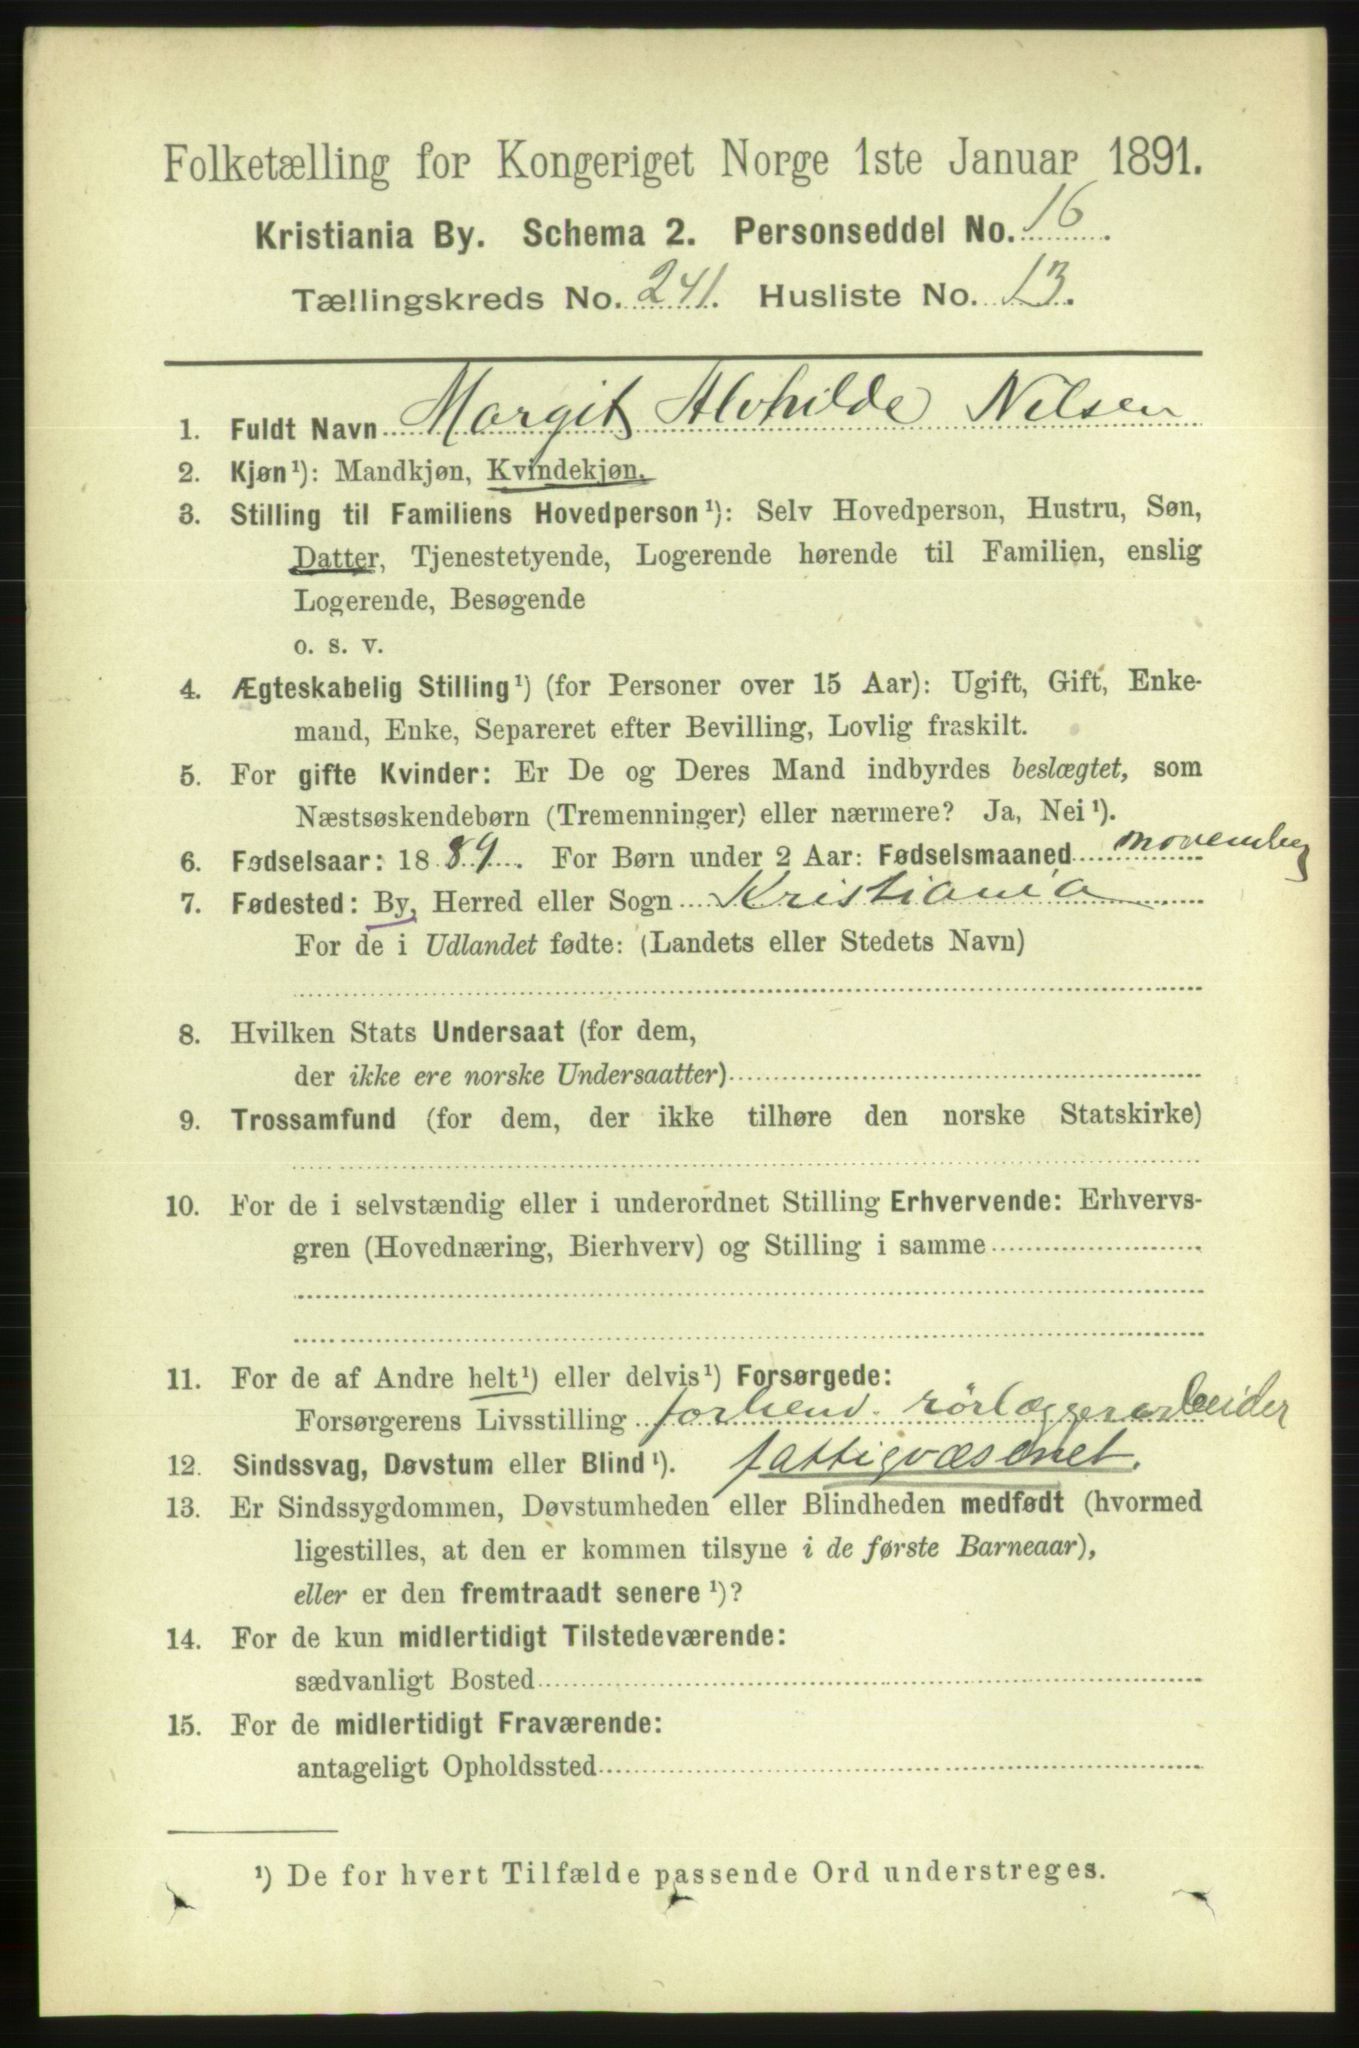 Folketælling for Kongeriget Norge 1ste Januar 1891.
Kristiania By. Schema 2. Personseddel No. 16.
Tællingskreds No. 241. Husliste No. 13.
1. Fuldt Navn Margit Alvhilde Nilsen
2. Kjøn ¹): Mandkjøn, Kvindekjøn.
3. Stilling til Familiens Hovedperson ¹): Selv Hovedperson, Hustru, Søn,
Datter, Tjenestetyende, Logerende hørende til Familien, enslig
Logerende, Besøgende
o. s. v.
4. Ægteskabelig Stilling ¹) (for Personer over 15 Aar): Ugift, Gift, Enke-
mand, Enke, Separeret efter Bevilling, Lovlig fraskilt.
5. For gifte Kvinder: Er De og Deres Mand indbyrdes beslægtet, som
Næstsøskendebørn (Tremenninger) eller nærmere? Ja, Nei ¹).
6. Fødselsaar: 1889. For Børn under 2 Aar: Fødselsmaaned november
7. Fødested: By, Herred eller Sogn Kristiania
For de i Udlandet fødte: (Landets eller Stedets Navn)
8. Hvilken Stats Undersaat (for dem,
der ikke ere norske Undersaatter)
9. Trossamfund (for dem, der ikke tilhøre den norske Statskirke)
10. For de i selvstændig eller i underordnet Stilling Erhvervende: Erhvervs-
gren (Hovednæring, Bierhverv) og Stilling i samme
11. For de af Andre helt ¹) eller delvis ¹) Forsørgede:
Forsørgerens Livsstilling forhenv. rörlæggerarbeider
12. Sindssvag, Døvstum eller Blind ¹). fattigvæsenet.
13. Er Sindssygdommen, Døvstumheden eller Blindheden medfødt (hvormed
ligestilles, at den er kommen tilsyne i de første Barneaar),
eller er den fremtraadt senere ¹)?
14. For de kun midlertidigt Tilstedeværende:
sædvanligt Bosted
15. For de midlertidigt Fraværende:
antageligt Opholdssted
¹) De for hvert Tilfælde passende Ord understreges.